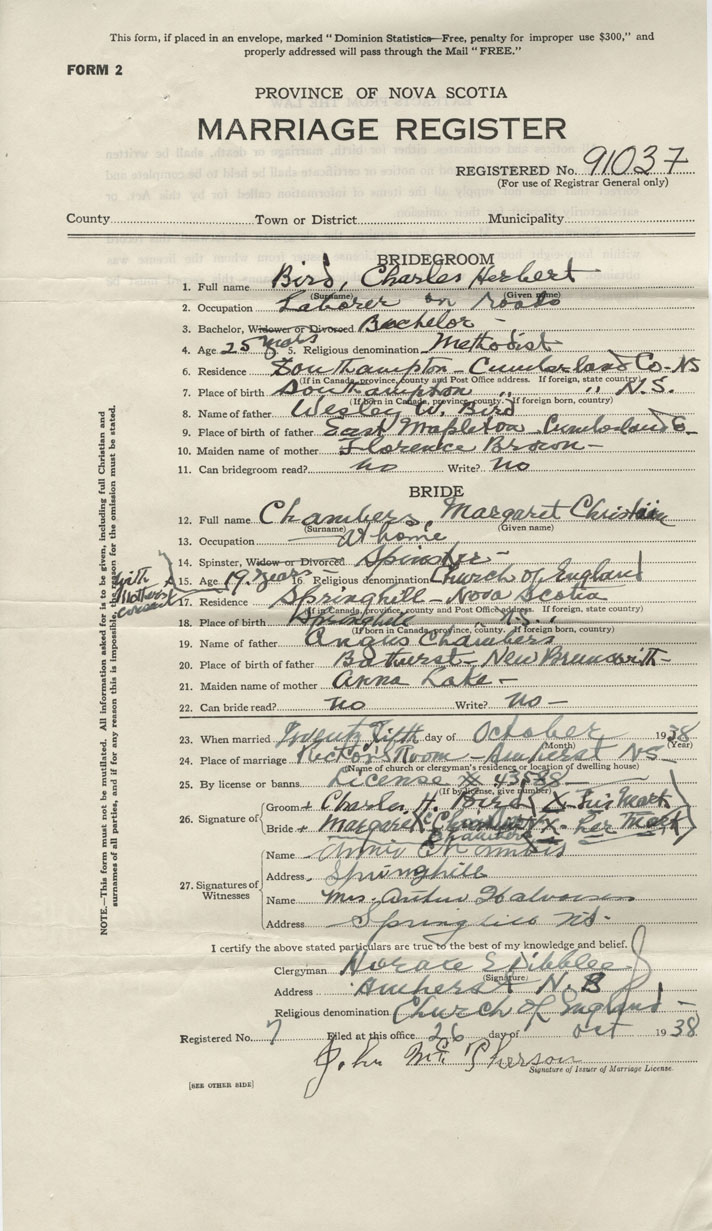 This form, if placed in an envelope, marked "Dominion Statistics—Free, penalty for improper use $300," and
properly addressed will pass through the Mail "FREE."
FORM 2
PROVINCE OF NOVA SCOTIA
MARRIAGE REGISTER
REGISTERED No. 91037
(For use of Registrar General only)
County Town or District Municipality
BRIDEGROOM
1. Full name Bird, Charles Herbert
(Surname) (Given name)
2. Occupation Laborer on roads
3. Bachelor, Widower or Divorced Bachelor -
4. Age 25 years 5. Religious denomination Methodist
6. Residence Southampton - Cumberland Co - NS
(If in Canada, province, county and Post Office address. If foreign, state country)
7. Place of birth Southampton " " N.S.
(If born in Canada, province, county. If foreign born, country)
8. Name of father Wesley W. Bird
9. Place of birth of father East Mapleton Cumberland Co
10. Maiden name of mother Florence Brown -
11. Can bridegroom read? no Write? No
BRIDE
12. Full name Chambers, Margaret
(Surname) (Given name)
13. Occupation at home
14. Spinster, Widow or Divorced Spinster -
with Mothers consent
15. Age 19 years - 16. Religious denomination Church of England
17. Residence Springhill - Nova Scotia
(If in Canada, province, county and Post Office address. If foreign, state country)
18. Place of birth Springhill N.S.
(If born in Canada, province, county. If foreign born, country)
19. Name of father Angus Chambers
20. Place of birth of father Bathurst - New Brunswick -
21. Maiden name of mother Anna Lake -
22. Can bride read? no Write? no -
23. When married Twenty Fifth day of October 1938
(Month) (Year)
24. Place of marriage Rector's Room - Amherst NS -
(Name of church or clergyman's residence or location of dwelling house)
25. By license or banns License
(If by license, give number)
26. Signature of
Groom + Charles H. Bird X - his mark
Bride + Margaret Chambers X - her mark
27. Signatures of Witnesses
Name
Address Springhill
Name Mrs. Arthur
Address Springhill NS.
I certify the above stated particulars are true to the best of my knowledge and belief.
Clergyman Horace
(Signature)
Address Amherst N.
Religious denomination Church of England -
Registered No. 7 Filed at this office 26 day of Oct 1938
John
Signature of Issuer of Marriage License.
[SEE OTHER SIDE]
NOTE.—This form must not be mutilated. All information asked for is to be given, including full Christian and
surnames of all parties, and if for any reason this is impossible, the reason for the omission must be stated.